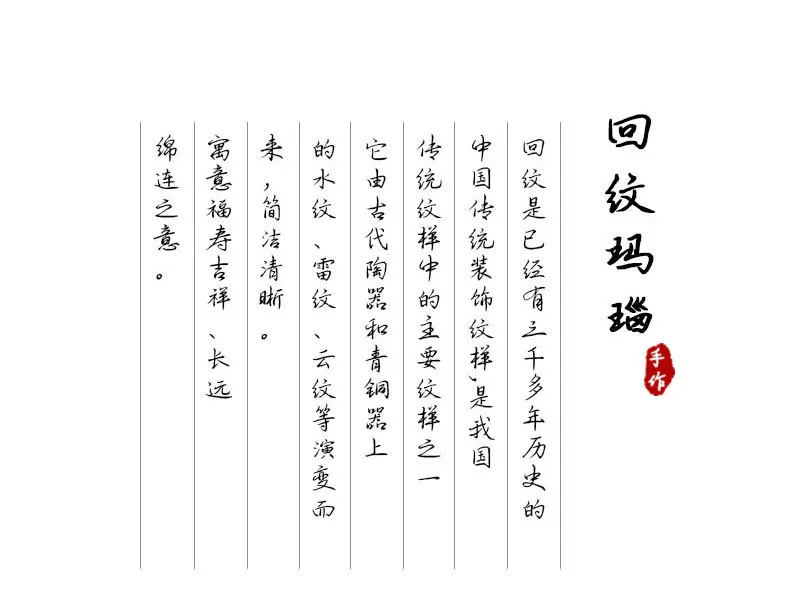 回纹玛瑙
手作
回纹是已经有三千多年历史的
中国传统装饰纹样、是我国
传统纹样中的主要纹样之一
它由古代陶器和青铜器上
的水纹、雷纹、云纹等演变而
来，简洁清晰。
寓意福寿吉祥、长远
绵连之意。